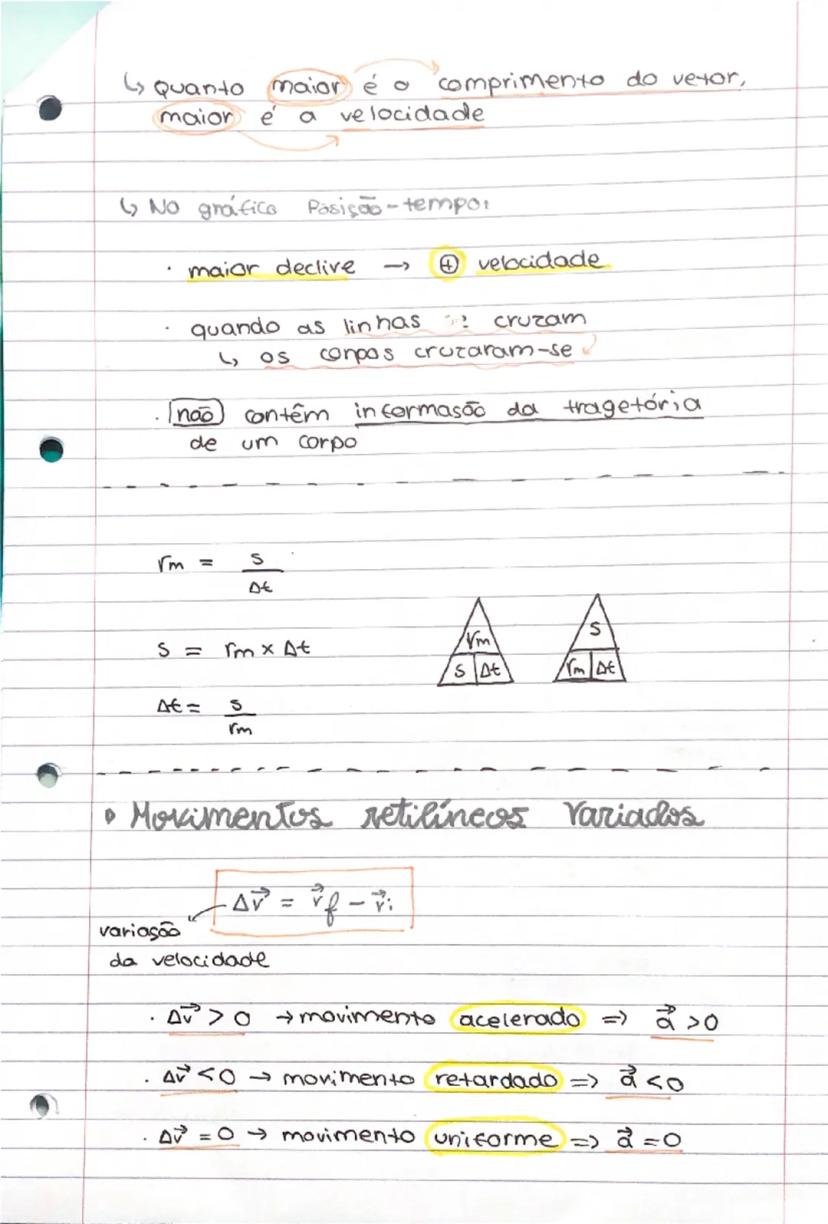 ↳ quanto maior é o comprimento do vetor,
maior é a velocidade
↳ No gráfico Posição-tempo:
· maior declive → ⊕ velocidade
· quando as linhas cruzam
↳ os corpos cruzaram-se
· não contêm informasão da tragetória
de um corpo
rm = s / Δt
s = rm × Δt
rm
s Δt
s
rm Δt
Δt = s / rm
Movimentos retilíneos variados
Δv⃗ = v⃗f - v⃗i
variasão
da velocidade
· Δv⃗ > 0 → movimento acelerado => a⃗ > 0
· Δv⃗ < 0 → movimento retardado => a⃗ < 0
· Δv⃗ = 0 → movimento uniforme => a⃗ = 0